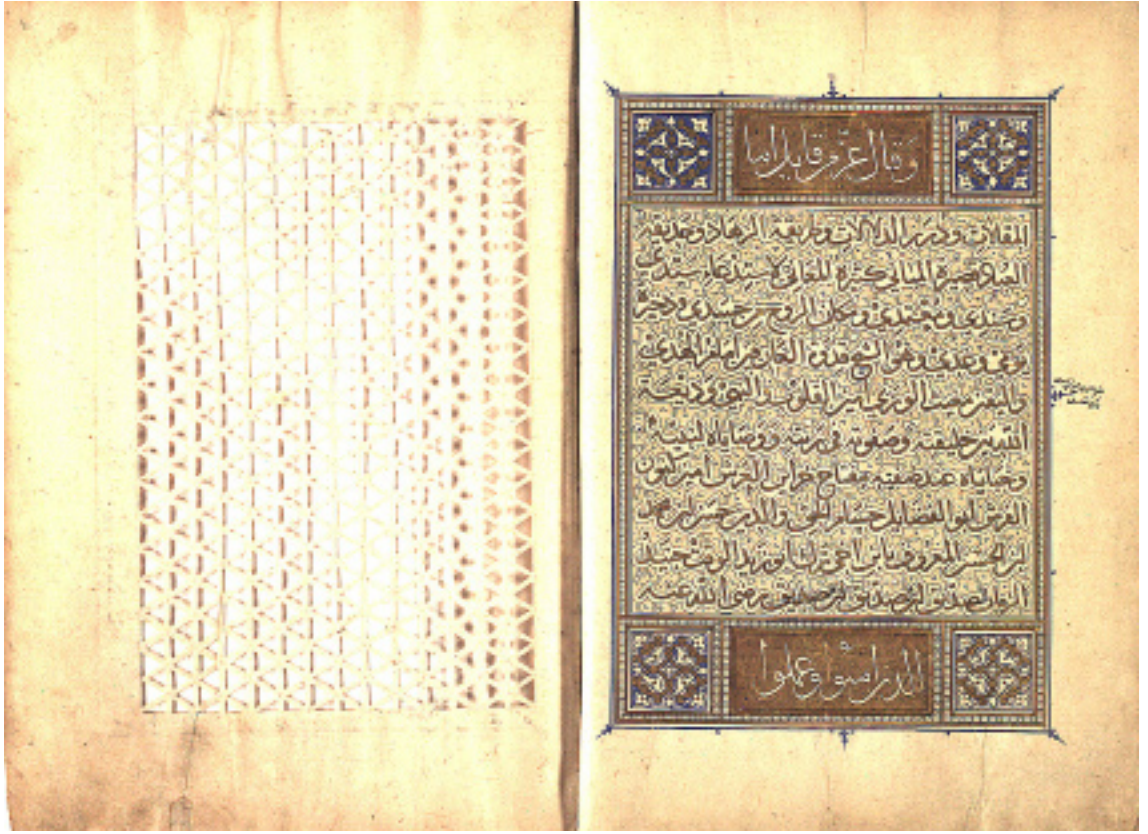 وقال عز من قايل انما
المقالات ودرر الدلالات وطريقة الزهاد وحديقة
العباد قصيرة المباني كثيرة المعاني لاستدعاء سيدي
وسندي ومعتمدي ومكان الروح من جسدي وذخيرة
يومي وغدي وهو الشيخ قدوة العارفين امام الهدى
واليقين مغيث الورى امين القلوب والنهى وديعة
الله بين خليقته وصفوته في بريته ووصاياه لنبيه
وخباياه عند صفيه مفتاح خزاين العرش امين كنوز
الفرش ابو الفضايل حسام الحق والدين حسن بن محمد
بن الحسن المعروف بابن اخي ترك ابو يزيد الوقت جنيد
الزمان صديق بن صديق بن صديق رضي الله عنه
الذين امنوا وعملوا